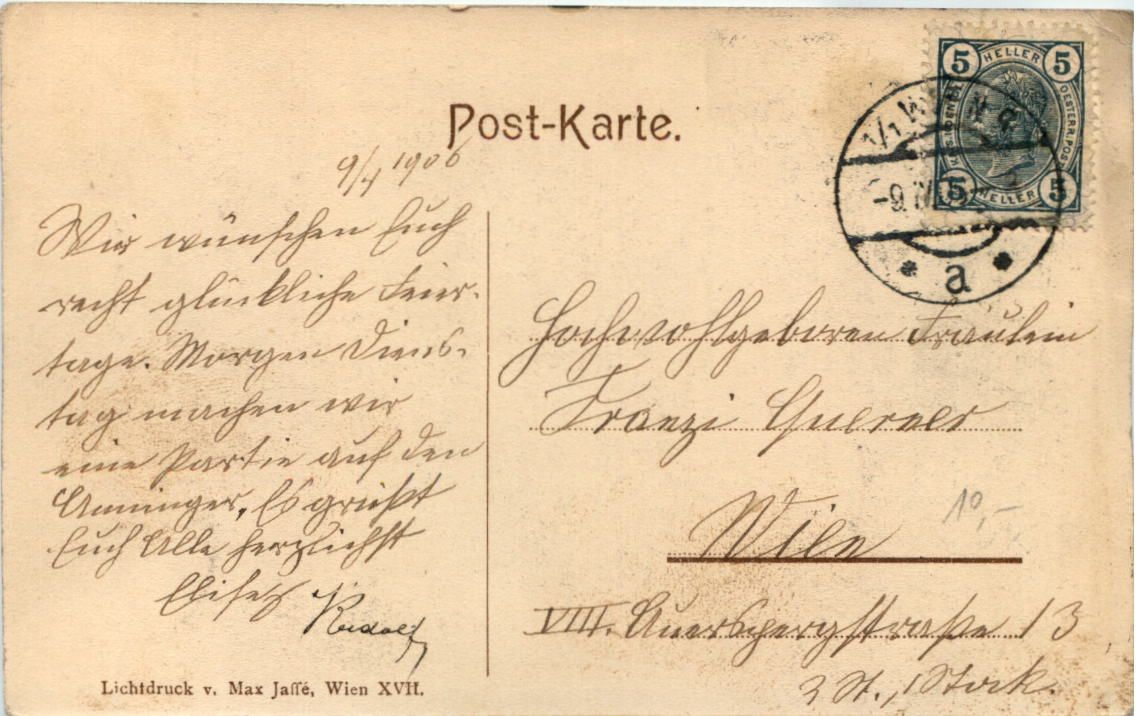 Post-Karte.
9/4 1906
Wir wünschen Euch
recht glückliche Feier-
tage. Morgen Diens-
tag machen wir
eine Partie auf den
Anninger. Es grüßt
Euch Alle herzlichst
Rudolf
Lichtdruck v. Max Jaffé, Wien XVII.
5 HELLER 5
OESTERR. POST
5 HELLER 5
1/1 WIEN
-9 IV
* a *
Hochwohlgeboren Fräulein
Franzi
Wien
10,-
VIII. Auerspergstraße 13
2 St., 1 Stock.